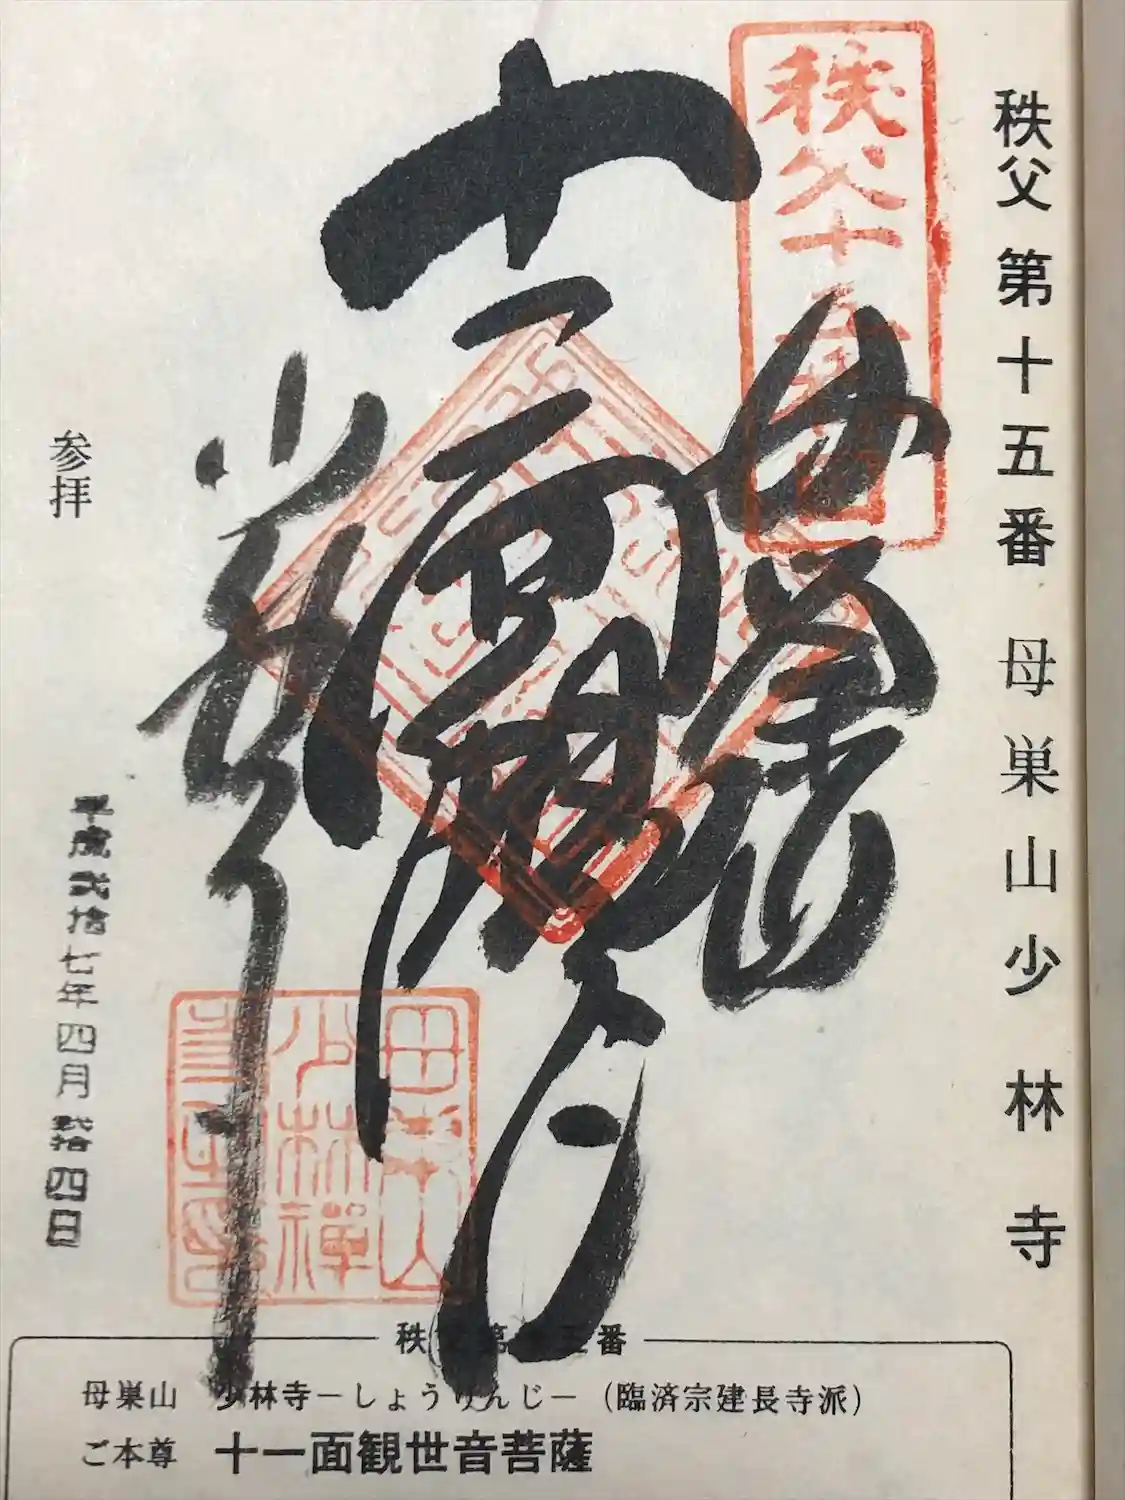 秩父第十五番 母巣山少林寺
秩父十五番
母巣山
十一面観音
少林寺
参拝
平成弐拾七年四月弐拾四日
秩父第十五番
母巣山 少林寺−しょうりんじ−(臨済宗建長寺派)
ご本尊 十一面観世音菩薩